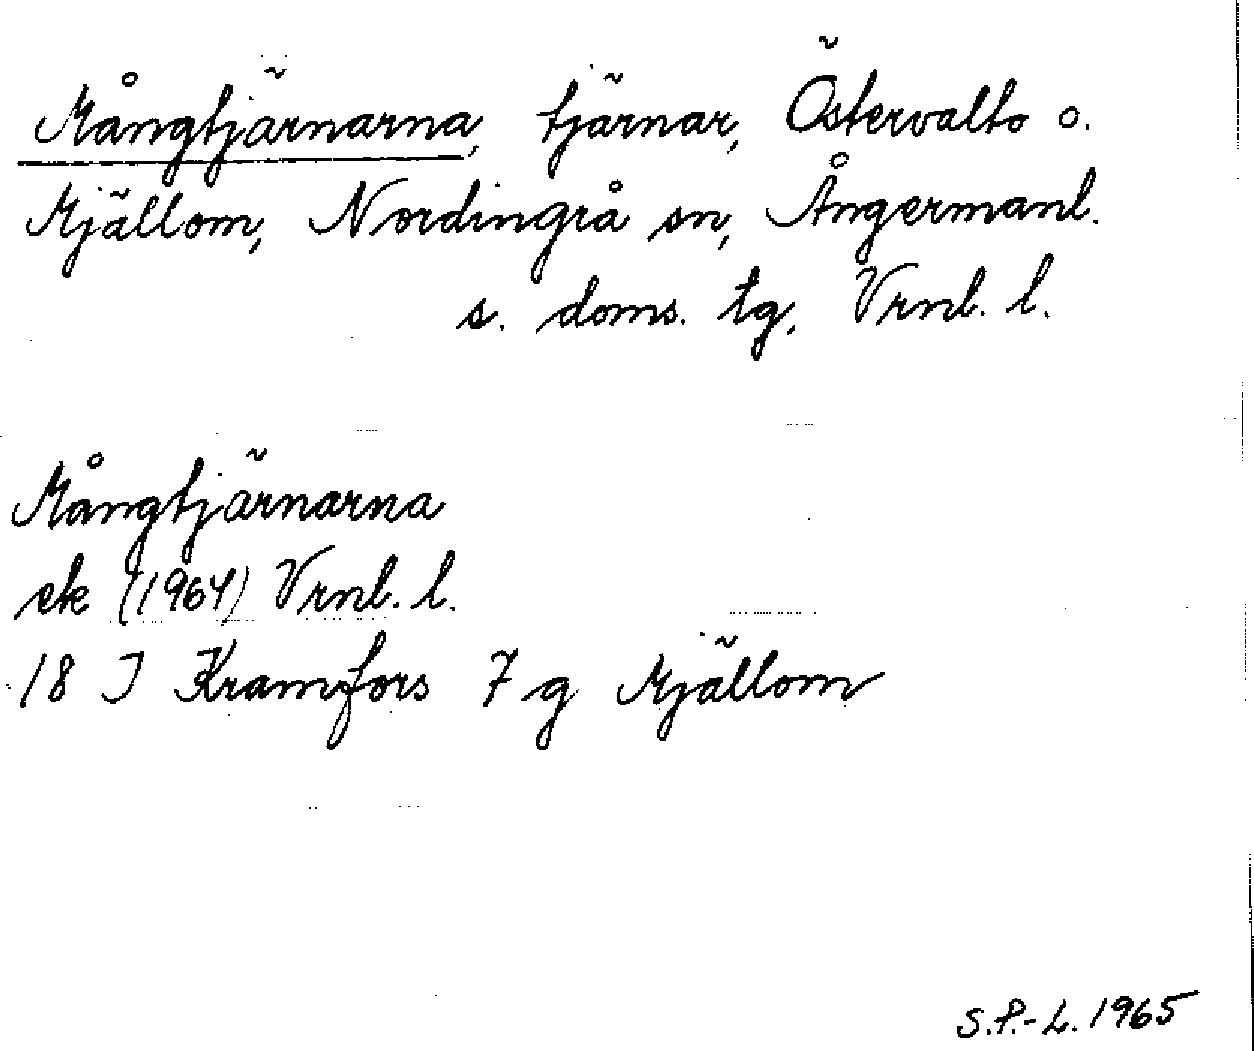 Mångtjärnarna, tjärnar, Östervalto o.
Mjällom, Nordingrå sn, Ångermanl.
s. doms. tg, Vrnl. l.
Mångtjärnarna
ek (1964) Vrnl. l.
18 J Kramfors 7 g Mjällom
S.P.-L. 1965